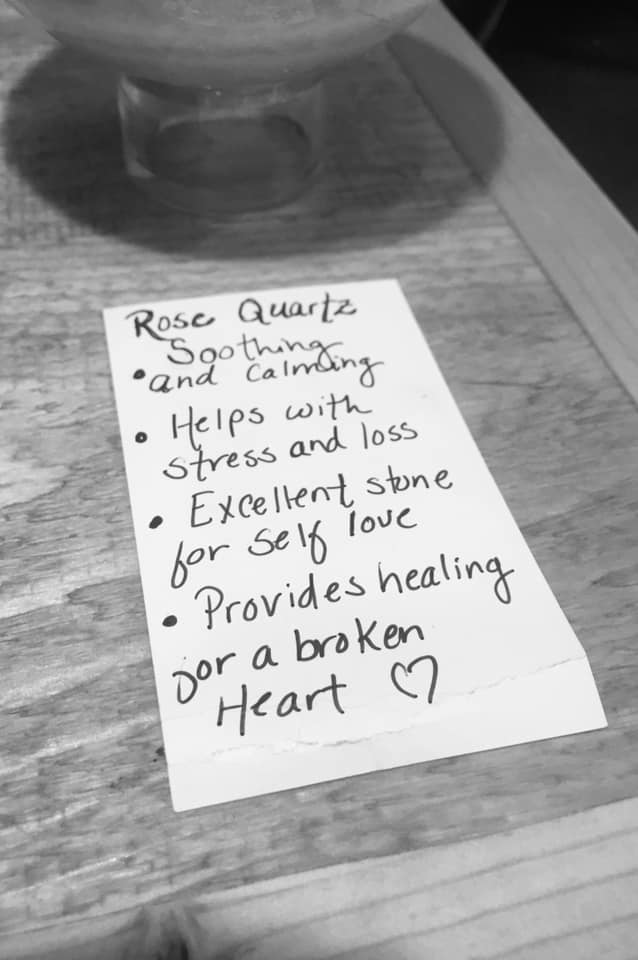 Rose Quartz
Soothing
• and Calming
• Helps with
stress and loss
• Excellent stone
for self love
• Provides healing
for a broken
Heart ♡